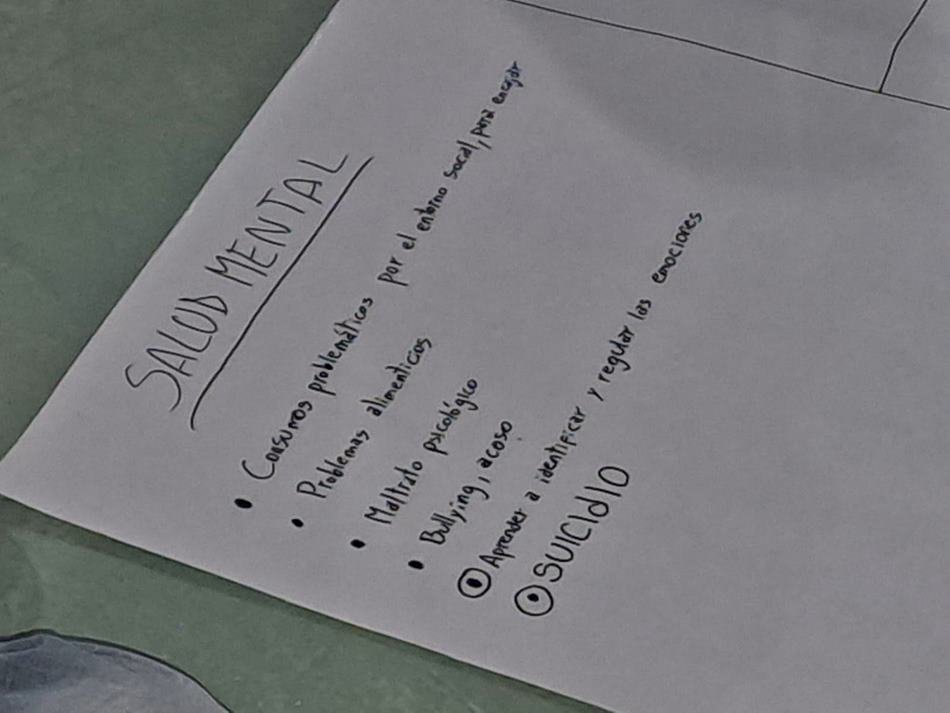 SALUD MENTAL
• Consumos problemáticos por el entorno social, para encajar
• Problemas alimenticios
• Maltrato psicológico
• Bullying, acoso
• Aprender a identificar y regular las emociones
• SUICIdIO